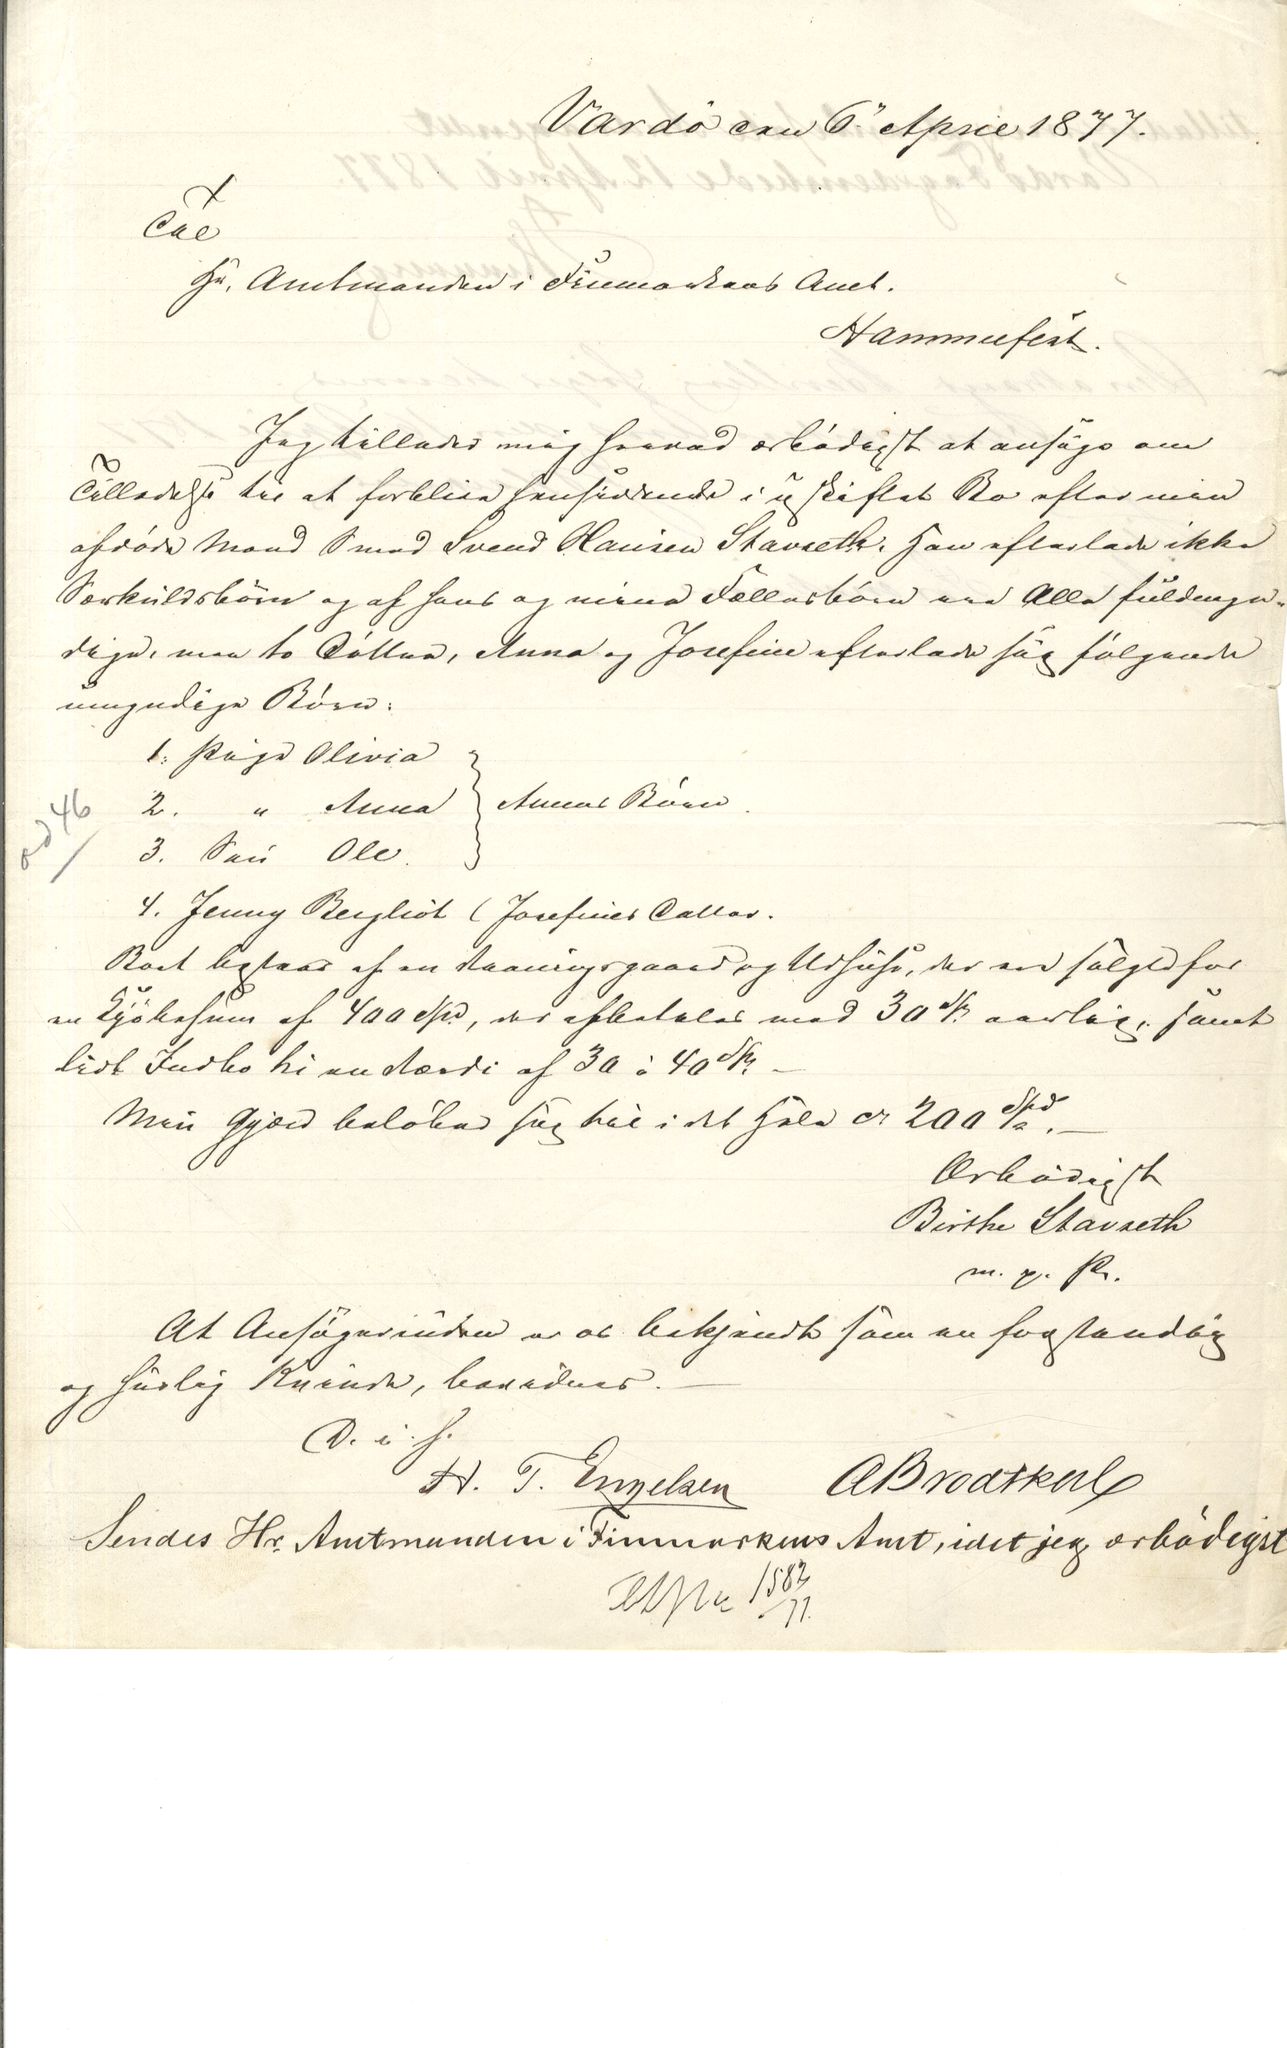 Vardö den 6te April 1877.
Til
Hr. Amtmanden i Finmarkens Amt.
Hammerfest.
Jeg tillader mig herved ærbödigst at ansöge om
Tilladelse til at forblive hensiddende i uskiftet Bo efter min
afdöde Mand Smed Svend Hansen Stavseth. Han efterlod ikke
Særkuldsbörn og af hans og mine Fællesbörn ere Alle fuldmyn-
dige, men to Döttre, Anna og Josefine efterlode sig fölgende
umyndige Börn:
1. Pige Olivia
2. " Anna } Annas Börn.
3. Sön Ole.
4. Jenny Bergliot ( Josefines Datter.
Boet bestaar af en Vaaningsgaard og Udhuse, der ere solgte for
en Kjöbesum af 400 Spd, der afbetales med 30 Sp. aarlig, samt
lidt Indbo til en Værdi af 30 à 40 Sp. —
Min Gjæld belöber sig til i det Hele ca 200 Spd. —
Ærbödigst
Birthe Stavseth
m. p. P.
At Ansögerinden er os bekjendt som en forstandig
og huslig Kvinde, bevidnes. —
D. u. s.
H. T. Engelsen A Brodtkorb
Sendes Hr. Amtmanden i Finmarkens Amt, idet jeg ærbödigst
1582/77.
ad 46